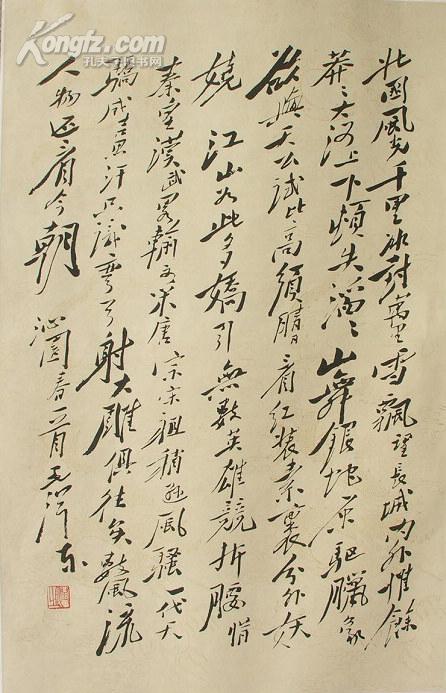 Kongfz.com
孔夫子旧书网
北国风光千里冰封萬里雪飄望长城内外惟餘
莽々大河上下頓失滔々山舞银蛇原驱臘象
欲與天公試比高須晴看红装素裹分外妖
娆 江山如此多嬌引無數英雄競折腰惜
秦皇漢武略輸文采唐宗宋祖稍逊風騷一代天
驕成吉思汗只識彎弓射大雕俱往矣數風流
人物还看今朝 沁园春一首 毛泽东